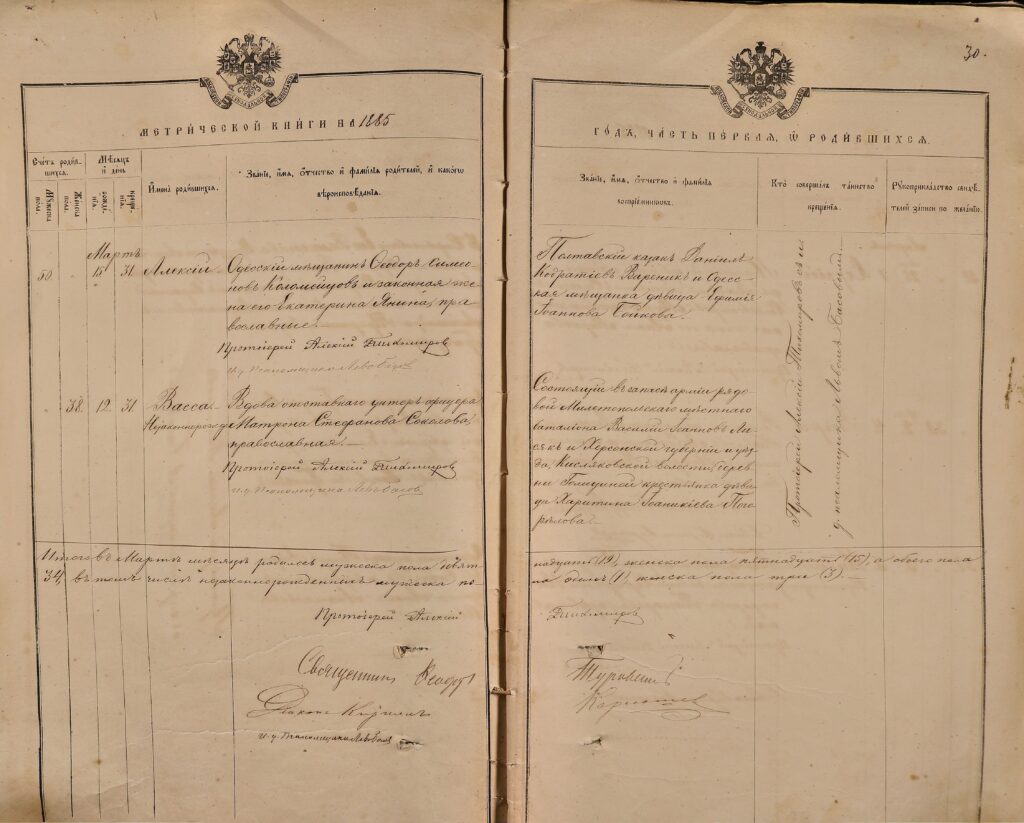 30.
МЕТРИЧЕСКОЙ КНИГИ НА 1885
ГОДЪ, ЧАСТЬ ПЕРВАЯ, Ѡ РОДИВШИХСЯ.
Счетъ родив-
шихся.
Мужеска пола.
Женска пола.
Мѣсяцъ и день
рожденія.
крещенія.
Имена родившихся.
Званіе, имя, отчество и фамилія родителей, и какого
вѣроисповѣданія.
Званіе, имя, отчество и фамилія
воспріемниковъ.
Кто совершалъ таинство
крещенія.
Рукоприкладство свидѣ-
телей записи по желанію.
Мартъ
50. 15 31 Алексій
Одесскій мѣщанинъ Ѳеодоръ Симео-
новъ Коломейцовъ и законная же-
на его Екатерина Янина, пра-
вославные.
Протоіерей Алексій Тихомировъ
Полтавскій казакъ Даніилъ
Кодратіевъ Вареникъ и Одес-
ская мѣщанка дѣвица Ефимія
Іоаннова Бойкова.
Протоіерей Алексій Тихомировъ съ и.
д. псаломщика Львомъ Басовымъ.
38. 12 31 Васса
Незаконнорожд.
Вдова отставнаго унтеръ-офицера
Матрона Стефанова Соколова,
православная.
Протоіерей Алексій Тихомировъ
и. д. Псаломщика Левъ Басовъ
Состоящій въ запасѣ арміи рядо-
вой Мелетопольскаго мѣстнаго
баталіона Василій Іоанновъ Ли-
сякъ и Херсонской губерніи и уѣз-
да, Кисляковской волости, дерев-
ни крестьянка дѣви-
ца Харитина Іоаникіева Пого-
рѣлова.
Итого въ Мартѣ мѣсяцѣ родилось мужеска пола девят-
надцать (19), женска пола пятнадцать (15), а обоего пола
34, въ томъ числѣ незаконнорожденныхъ мужеска по-
ла одинъ (1), женска пола три (3).
Протоіерей Алексій
Тихомировъ
Священникъ
Діаконъ Кириллъ
и. д. Псаломщика